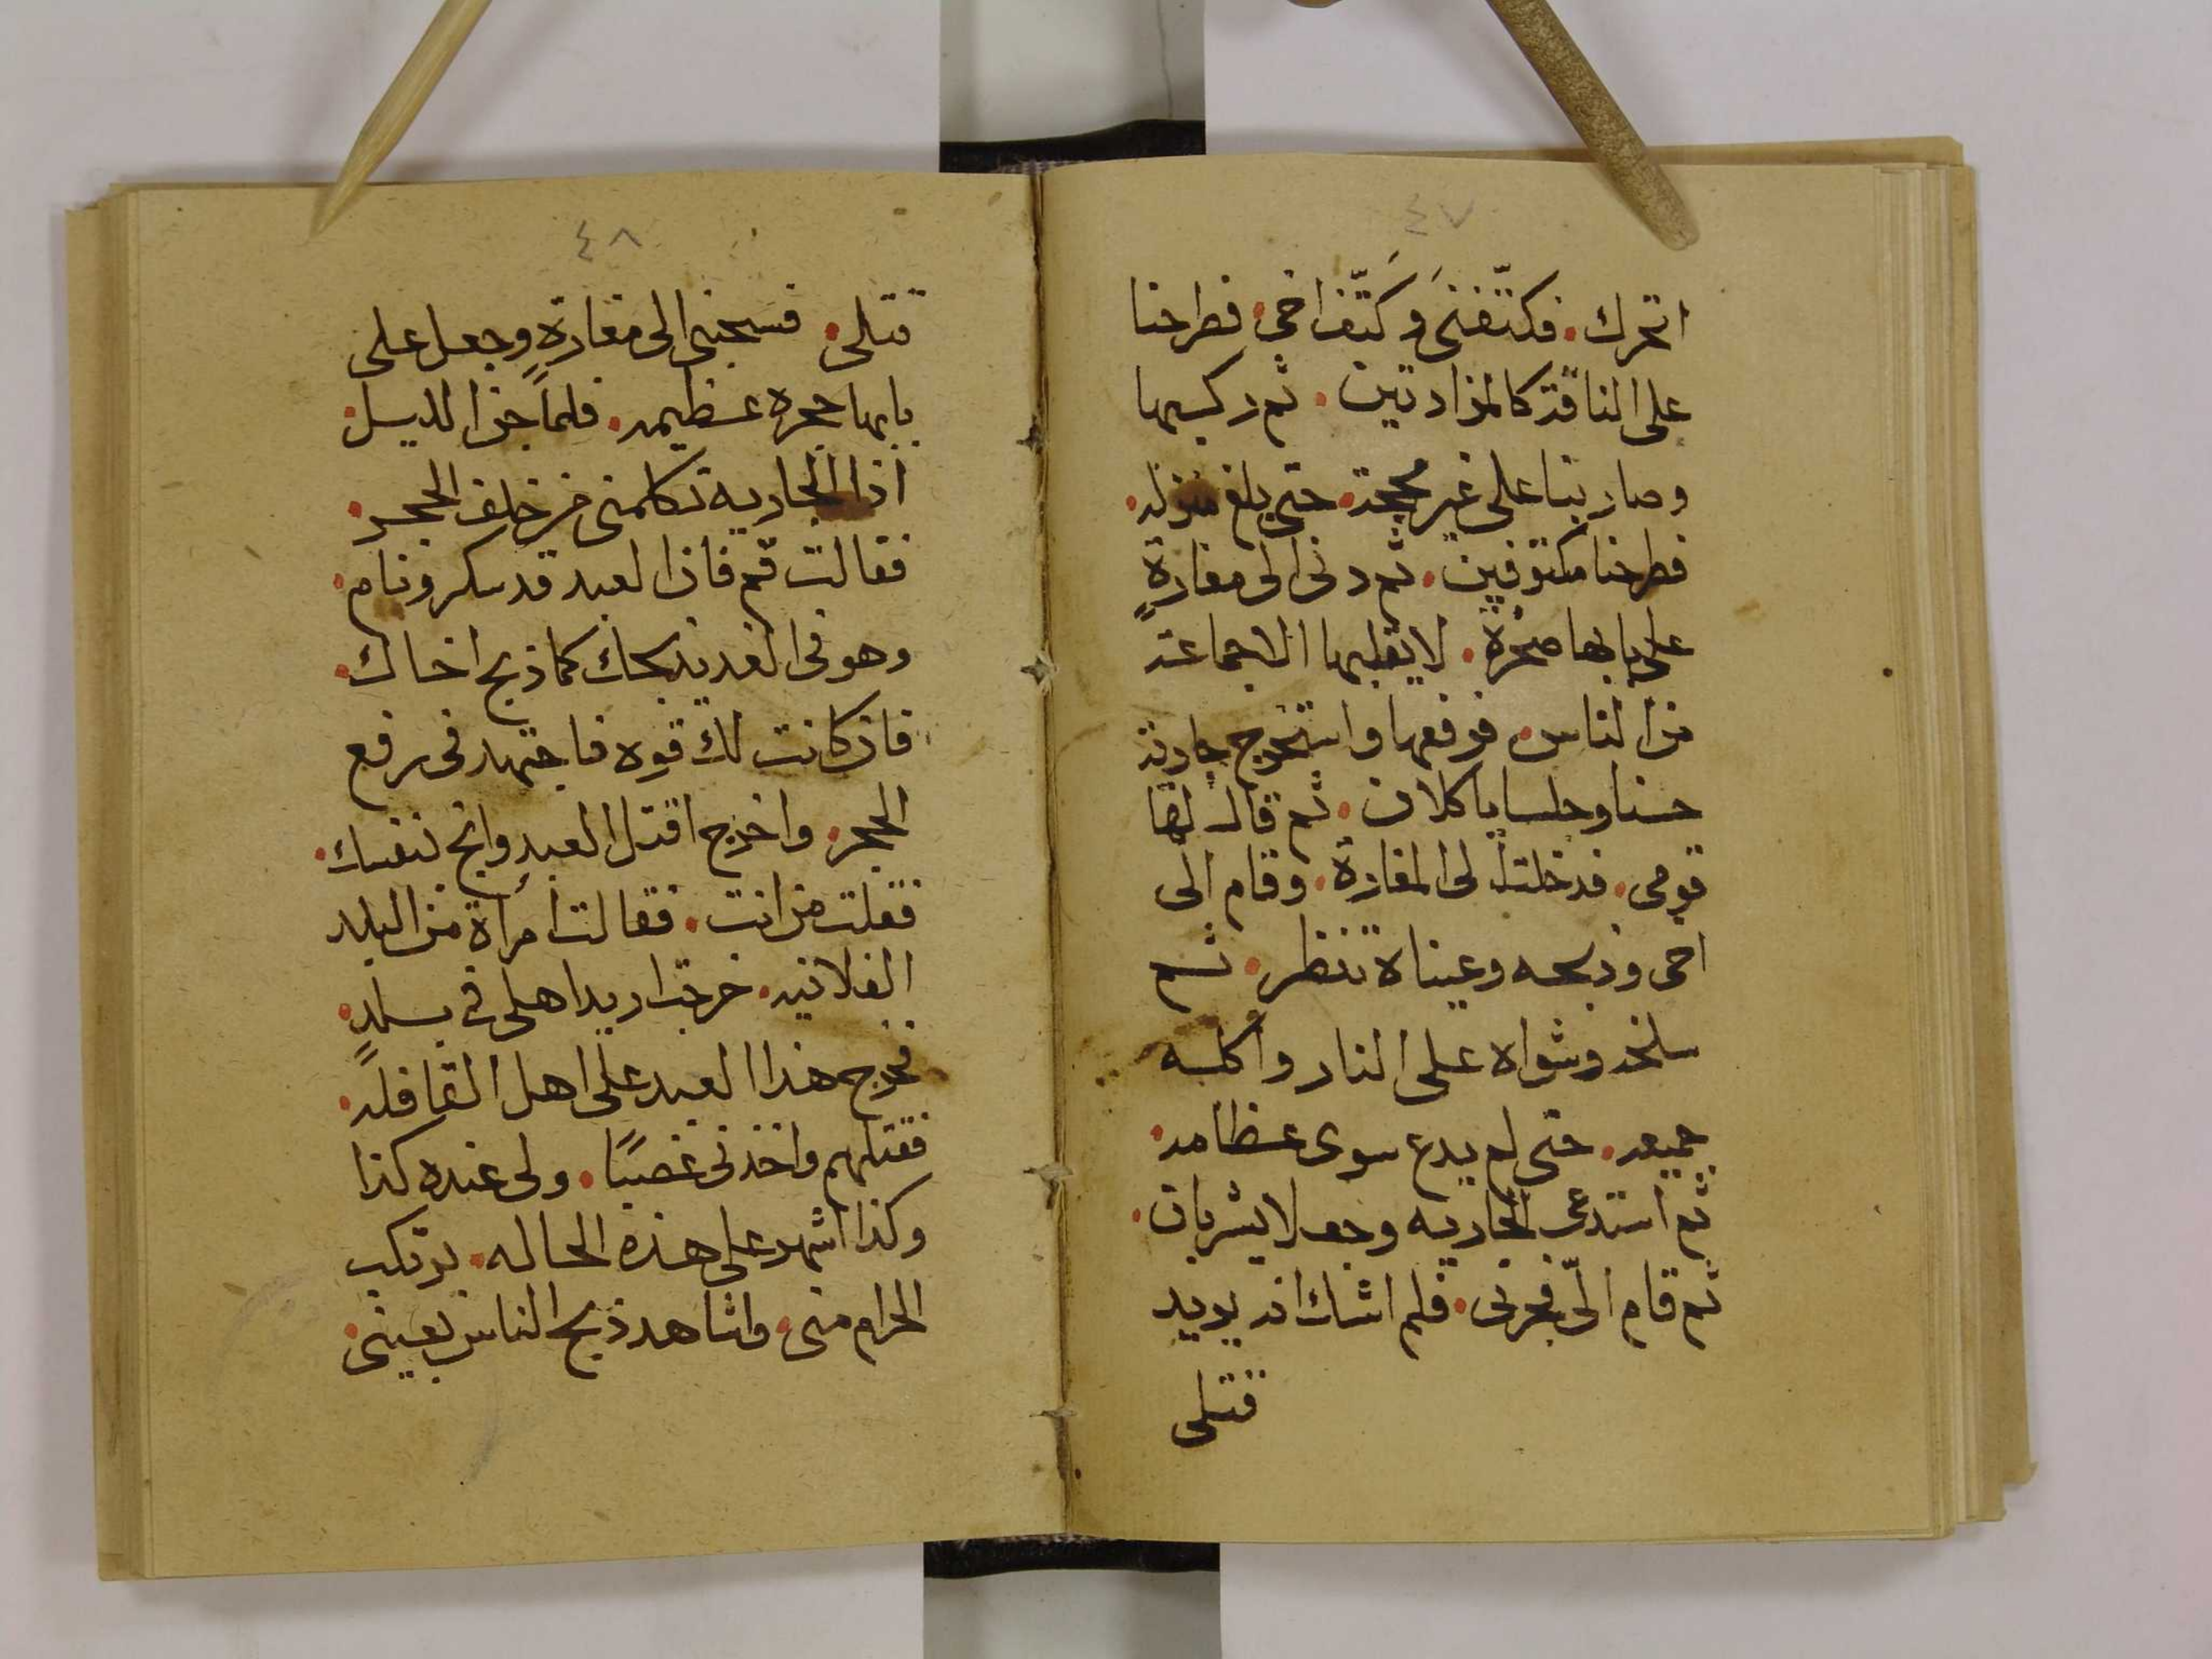 ٤٧
اتحرك. فكتّفنى وكتّف اخي. فطرحنا
على الناقة كالمزادتين. ثم ركبها
وصار بنا على غير محجة. حتى بلغ منزله.
فطرحنا مكتوفين. ثم دنى الى مغارةٍ
على بابها صخرة. لا يقلبها الا جماعة
من الناس. فرفعها واستخرج جارية
حسنا وجلسا ياكلان. ثم قال لها
قومى. فدخلت الى المغارة. وقام الى
اخى وذبحه وعيناه تنظر. ثم
سلخه وشواه على النار واكله
جميعه. حتى لم يدع سوى عظامه.
ثم استدعى الجاريه وجعلا يشربان.
ثم قام الىّ فجرنى. فلم اشك انه يريد
قتلى
٤٨
قتلى. فسحبنى الى مغارةٍ وجعل على
بابها حجره عظيمه. فلما جن الليل.
اذا الجارية تكلمنى من خلف الحجر.
فقالت قم فان العبد قد سكر ونام.
وهو فى الغد يذبحك كما ذبح اخاك.
فان كانت لك قوه فاجتهد فى رفع
الحجر. واخرج اقتل العبد وانج بنفسك.
فقلت من انت. فقالت امرأة من البلد
الفلانيه. خرجت اريد اهلى فى بلدٍ.
فخرج هذا العبد على اهل القافلة.
فقتلهم واخذنى غصبًا. ولى عنده كذا
وكذا اشهر على هذه الحاله. يرتكب
الحرام منى. واشاهد ذبح الناس بعينى.